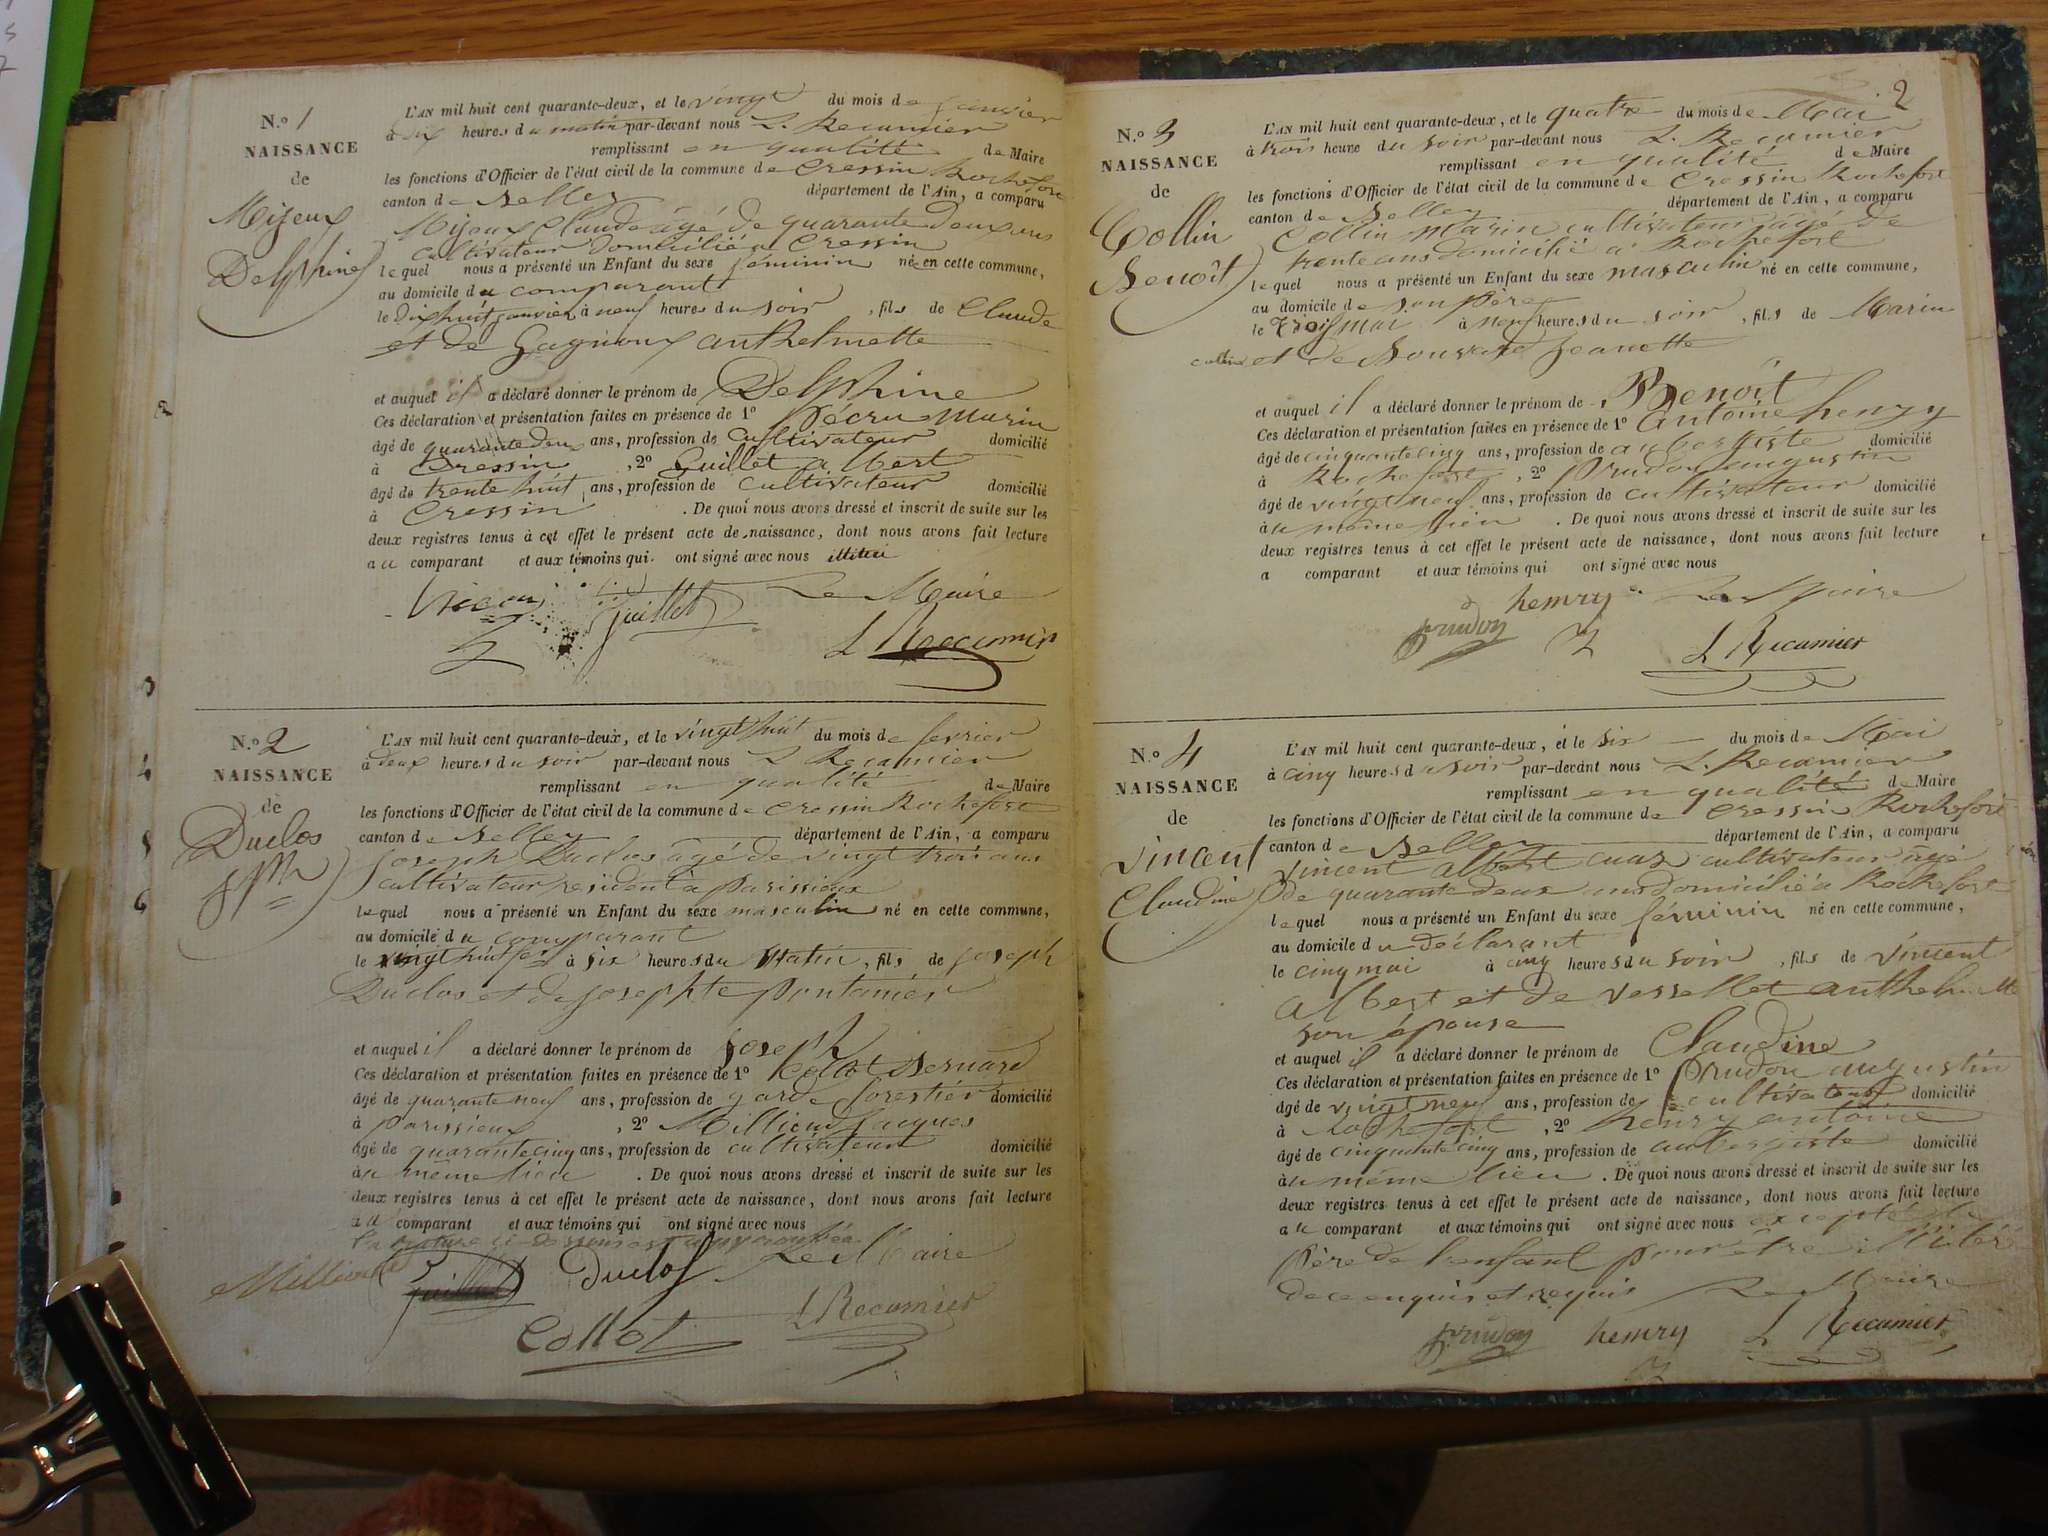 N.o 1
NAISSANCE
de
Mijeux
Delphine
L'AN mil huit cent quarante-deux, et le vingt du mois de janvier
à dix heures du matin par-devant nous L. Recamier
remplissant en qualité de Maire
les fonctions d'Officier de l'état civil de la commune de Cressin Rochefort
canton de Belley département de l'Ain, a comparu
Mijeux Claude âgé de quarante deux ans
cultivateur domicilié à Cressin
lequel nous a présenté un Enfant du sexe féminin née en cette commune,
au domicile du comparant
le dix huit janvier à neuf heures du soir, fils de Claude
et de anthelmette
et auquel il a déclaré donner le prénom de Delphine
Ces déclaration et présentation faites en présence de 1o Marin
âgé de quarante deux ans, profession de cultivateur domicilié
à Cressin, 2o Guillet albert
âgé de trente huit ans, profession de cultivateur domicilié
à Cressin. De quoi nous avons dressé et inscrit de suite sur les
deux registres tenus à cet effet le présent acte de naissance, dont nous avons fait lecture
au comparant et aux témoins qui ont signé avec nous
guillet Le Maire
L Recamier
N.o 2
NAISSANCE
de
Duclos
jph
L'AN mil huit cent quarante-deux, et le vingt huit du mois de fevrier
à deux heures du soir par-devant nous L Recamier
remplissant en qualité de Maire
les fonctions d'Officier de l'état civil de la commune de Cressin Rochefort
canton de Belley département de l'Ain, a comparu
Joseph Duclos âgé de vingt trois ans
cultivateur resident à parissieux
lequel nous a présenté un Enfant du sexe masculin né en cette commune,
au domicile du comparant
le vingt huit fer à six heures du Matin, fils de joseph
Duclos et de josephte pontanier
et auquel il a déclaré donner le prénom de joseph
Ces déclaration et présentation faites en présence de 1o Collot Bernard
âgé de quarante neuf ans, profession de garde forestier domicilié
à parissieux, 2o Millieud Jacques
âgé de quarante cinq ans, profession de cultivateur domicilié
au même lieu. De quoi nous avons dressé et inscrit de suite sur les
deux registres tenus à cet effet le présent acte de naissance, dont nous avons fait lecture
au comparant et aux témoins qui ont signé avec nous
Duclos Le Maire
Collot L Recamier
2
N.o 3
NAISSANCE
de
Collin
Benoît
L'AN mil huit cent quarante-deux, et le quatre du mois de Mai
à trois heure du soir par-devant nous L. Recamier
remplissant en qualité de Maire
les fonctions d'Officier de l'état civil de la commune de Cressin Rochefort
canton de Belley département de l'Ain, a comparu
Collin Marin cultivateur âgé de
trente ans domicilié à Rochefort
lequel nous a présenté un Enfant du sexe masculin né en cette commune,
au domicile de son père
le trois mai à neuf heures du soir, fils de Marin
collin et de Jeanette
et auquel il a déclaré donner le prénom de Benoît
Ces déclaration et présentation faites en présence de 1o antoine henry
âgé de cinquante cinq ans, profession de aubergiste domicilié
à Rochefort, 2o prudon augustin
âgé de vingt neuf ans, profession de cultivateur domicilié
au même lieu. De quoi nous avons dressé et inscrit de suite sur les
deux registres tenus à cet effet le présent acte de naissance, dont nous avons fait lecture
a comparant et aux témoins qui ont signé avec nous
henry Le Maire
prudon L Recamier
N.o 4
NAISSANCE
de
Vincent
Claudine
L'AN mil huit cent quarante-deux, et le six du mois de Mai
à cinq heures du soir par-devant nous L. Recamier
remplissant en qualité de Maire
les fonctions d'Officier de l'état civil de la commune de Cressin Rochefort
canton de Belley département de l'Ain, a comparu
Vincent albert cultivateur âgé
de quarante deux ans domicilié à Rochefort
lequel nous a présenté un Enfant du sexe féminin né en cette commune,
au domicile du déclarant
le cinq mai à cinq heures du soir, fils de Vincent
albert et de Vessellet anthelmette
son épouse
et auquel il a déclaré donner le prénom de Claudine
Ces déclaration et présentation faites en présence de 1o prudon augustin
âgé de vingt neuf ans, profession de cultivateur domicilié
à Rochefort, 2o henry antoine
âgé de cinquante cinq ans, profession de aubergiste domicilié
au même lieu. De quoi nous avons dressé et inscrit de suite sur les
deux registres tenus à cet effet le présent acte de naissance, dont nous avons fait lecture
au comparant et aux témoins qui ont signé avec nous excepté le
père de l'enfant pour être illitéré
de ce enquis et requis Le Maire
prudon henry L Recamier